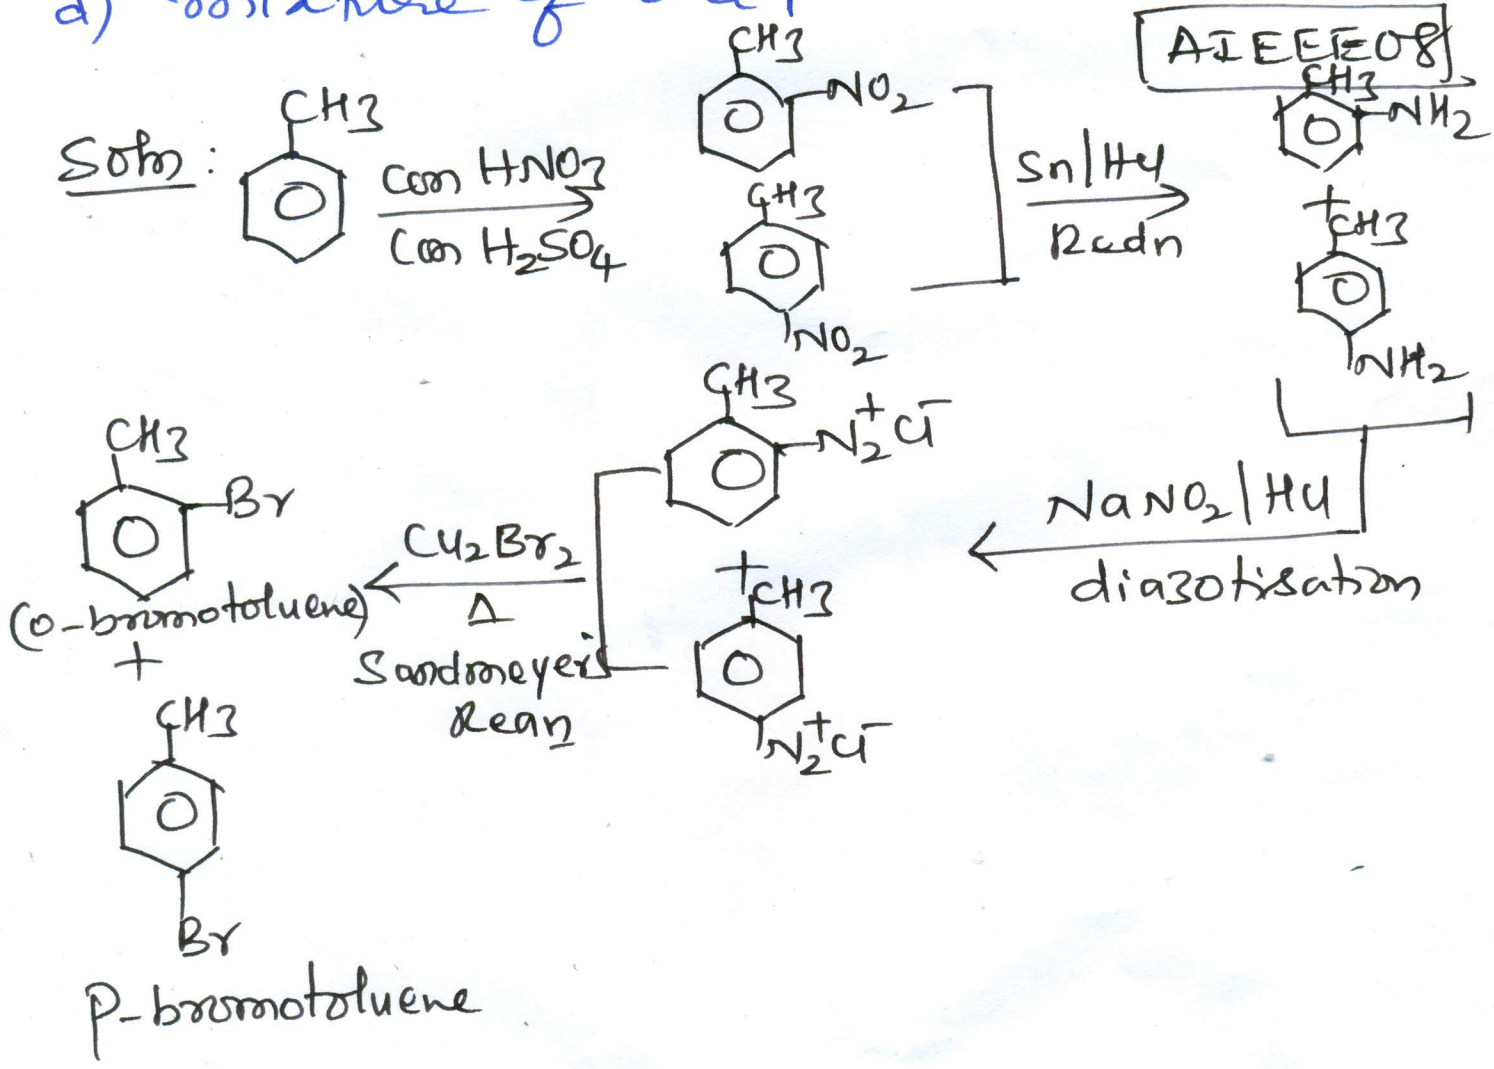 d)
of
AIEEE08
Soln:
CH3
con HNO3
Con H2SO4
CH3
NO2
CH3
NO2
Sn|HCl
Redn
CH3
NH2
+
CH3
NH2
NaNO2|HCl
diazotisation
CH3
N2+Cl-
+
CH3
N2+Cl-
Cu2Br2
Δ
Sandmeyer's
Rean
CH3
Br
(o-bromotoluene)
+
CH3
Br
p-bromotoluene